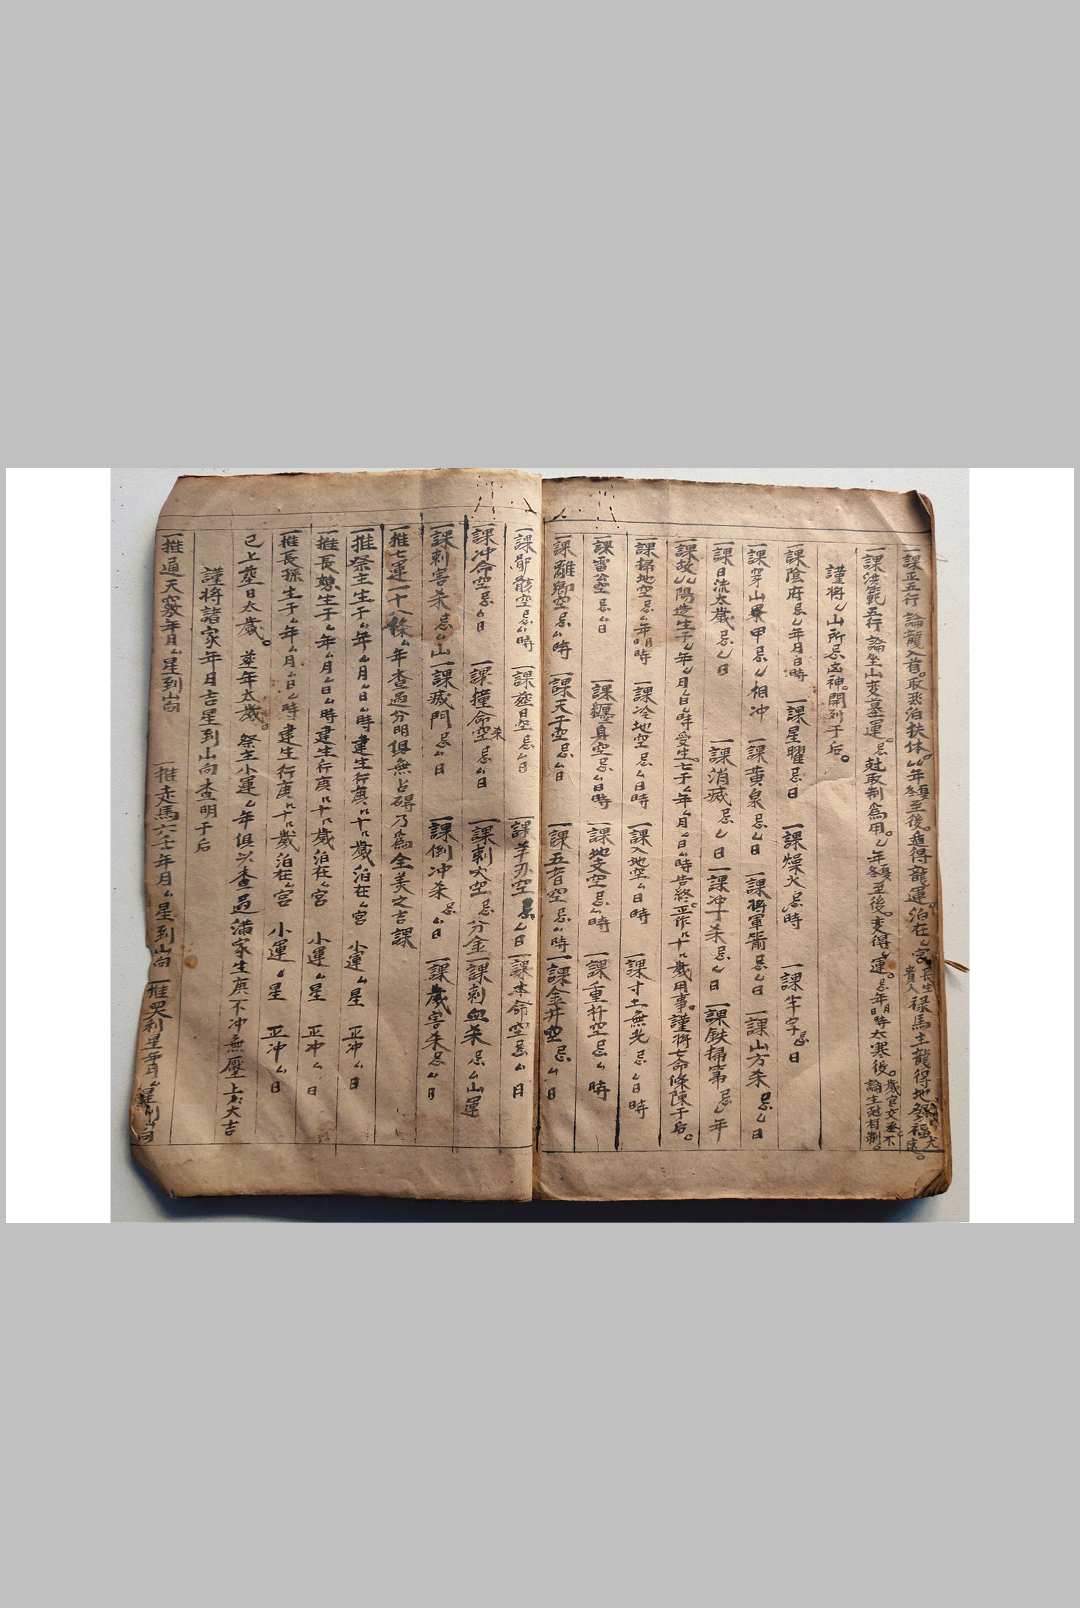 一課正五行論龍入首取　泊扶体　年　至後進得龍運泊在　宮　貴人長生祿馬主龍得地發福　遠
一課洪範五行論坐山变墓運忌尅取制為用　年　至後变得　運忌年月時太寒後
謹將　山所忌凶神開列于后
一課陰府忌　年月日時　一課星曜忌日　一課燥火忌時　一課牢字忌日
一課穿山甲忌　相冲　一課黃泉忌　日　一課將軍箭忌　日　一課山方杀忌　日
一課日流太歲忌　日　一課消滅忌　日　一課冲丁杀忌　日　一課鉄掃帚忌　年
一課故　陽造生于　年　月　日　時受生　于　年　月　日　時告終　十　歲用事謹將亡命條陳于后
一課掃地空忌　年月時　一課冷地空忌　日時　一課入地空　日時　一課寸土無光忌　日時
一課雷　空忌　日　一課　真空忌　日時　一課地支空忌　時　一課重 空忌　時
一課離鄉空忌　時　一課天子空忌　日　一課五音空忌　時　一課金井空忌　日
一課骨骸空忌　時　一課葬日空忌　日　一課羊刃空忌　日　一課本命空忌　日
一課冲命空忌　日　一課撞命空忌　日　一課刺穴空忌分金　一課刺血杀忌　山運
一課刺害杀忌　山　一課滅門忌　日　一課倒冲杀忌　日　一課歲害杀忌　日
一推七運一十八條　年查過分明俱無占碍乃為全美之吉課
一推祭主生于　年　月　日　時建生行庚　十　歲泊在　宮　小運　星　正冲　日
一推長媳生于　年　月　日　時建生行庚　十　歲泊在　宮　小運　星　正冲　日
一推長孫生于　年　月　日　時建生行庚　十　歲泊在　宮　小運　星　正冲　日
已上葬日太歲葬年太歲祭主小運　年俱以查過滿家生庚不冲無壓上上大吉
謹將諸家年月吉星到山向查明于后
一推通天竅年月　星到山向　一推走馬六壬年月　星到山向　一推　利星年月　星到山向